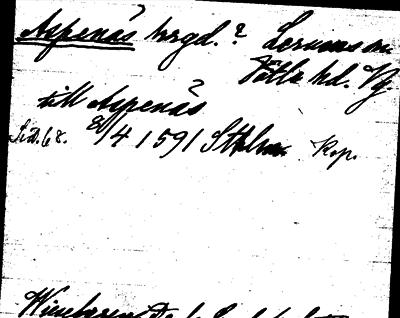 Aspenäs hrgd. ? Lerums sn
Vättle hd. Vg.
till Aspenäs ?
Sid. 68. 2/4 1591 Sthlm Kop.